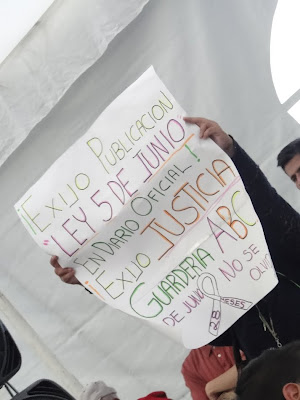 ¡EXIJO PUBLICACION
"LEY 5 DE JUNIO"
EN DIARIO OFICIAL!
¡EXIJO JUSTICIA
GUARDERIA ABC
DE JUNIO NO SE
28 MESES